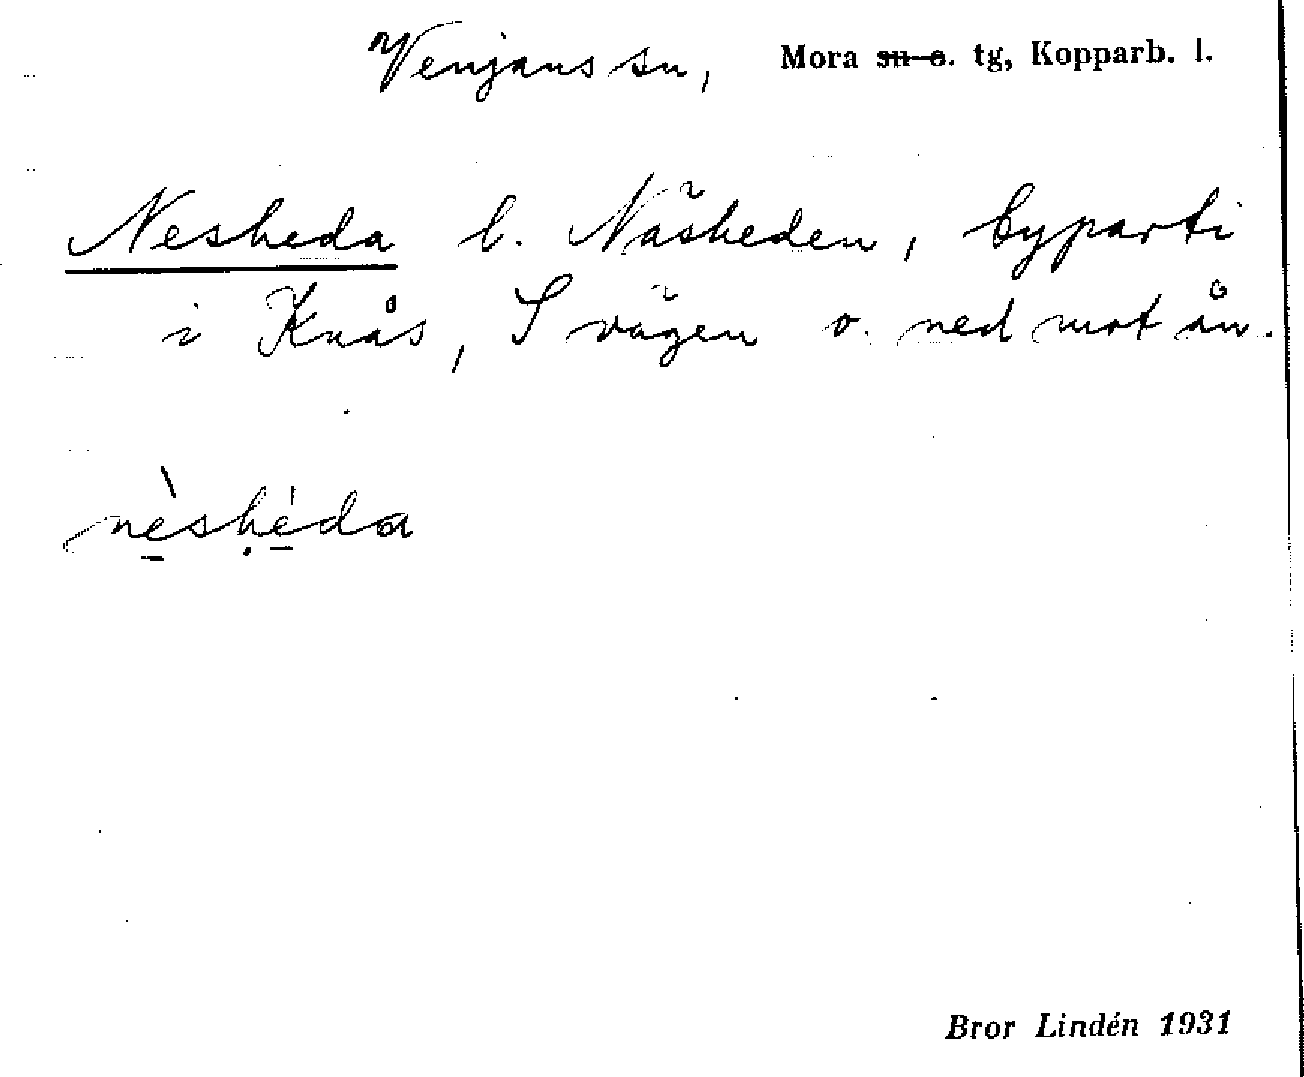 Venjans sn, Mora sn o. tg, Kopparb. l.
Nesheda l. Näsheden, byparti
i Knås, S vägen o. ned mot ån.
nèshéda
Bror Lindén 1931